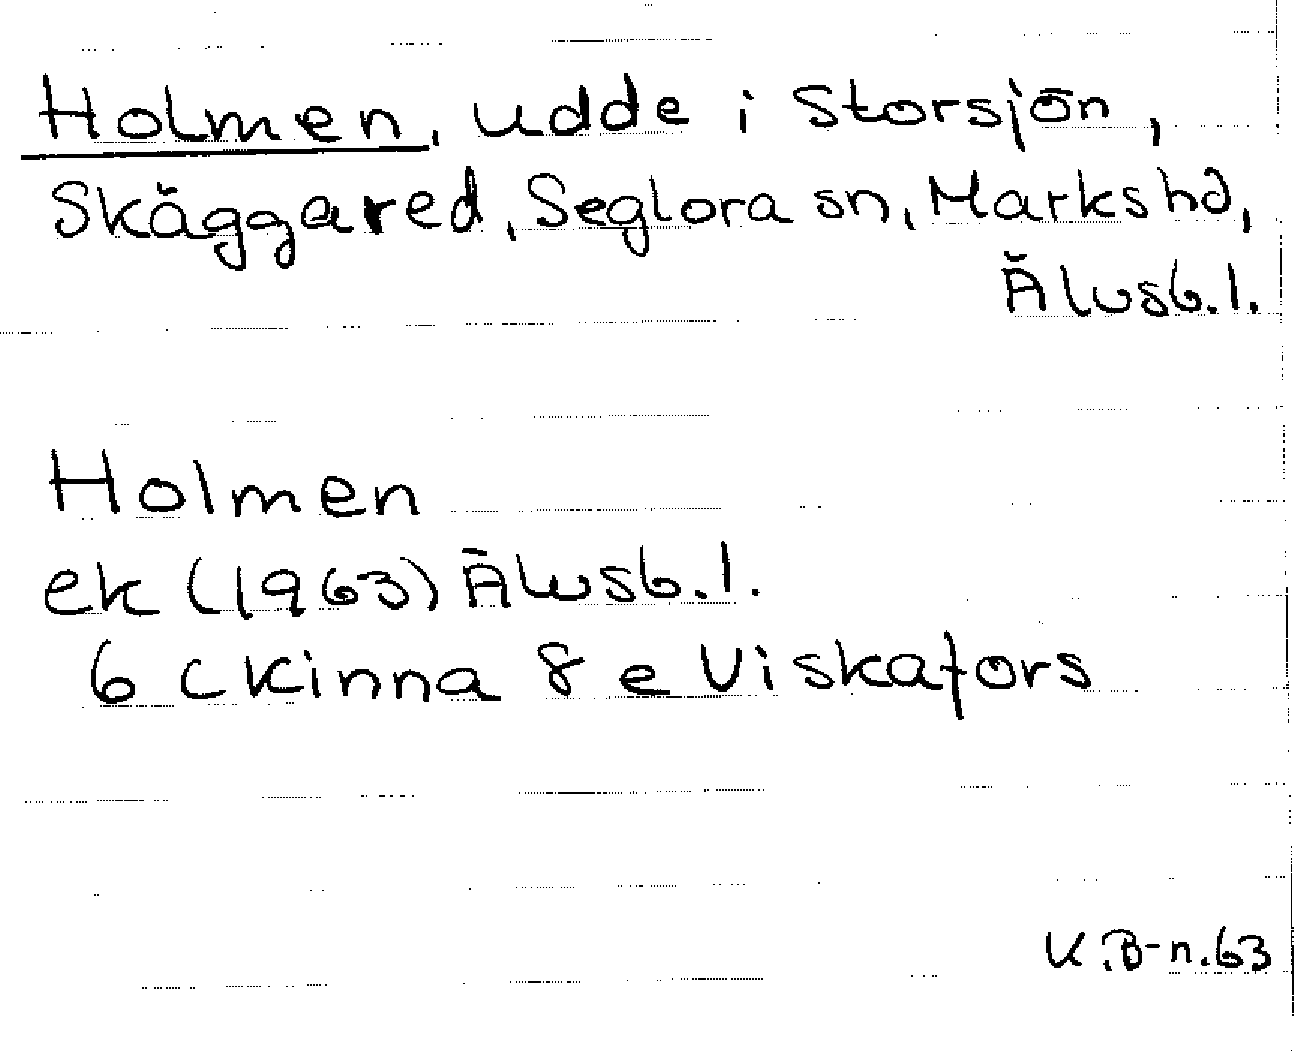 Holmen, udde i Storsjön,
Skäggared, Seglora sn, Marks hd,
Älvsb. l.
Holmen
ek (1963) Älvsb. l.
6 C Kinna 8 e Viskafors
K.B-n. 63